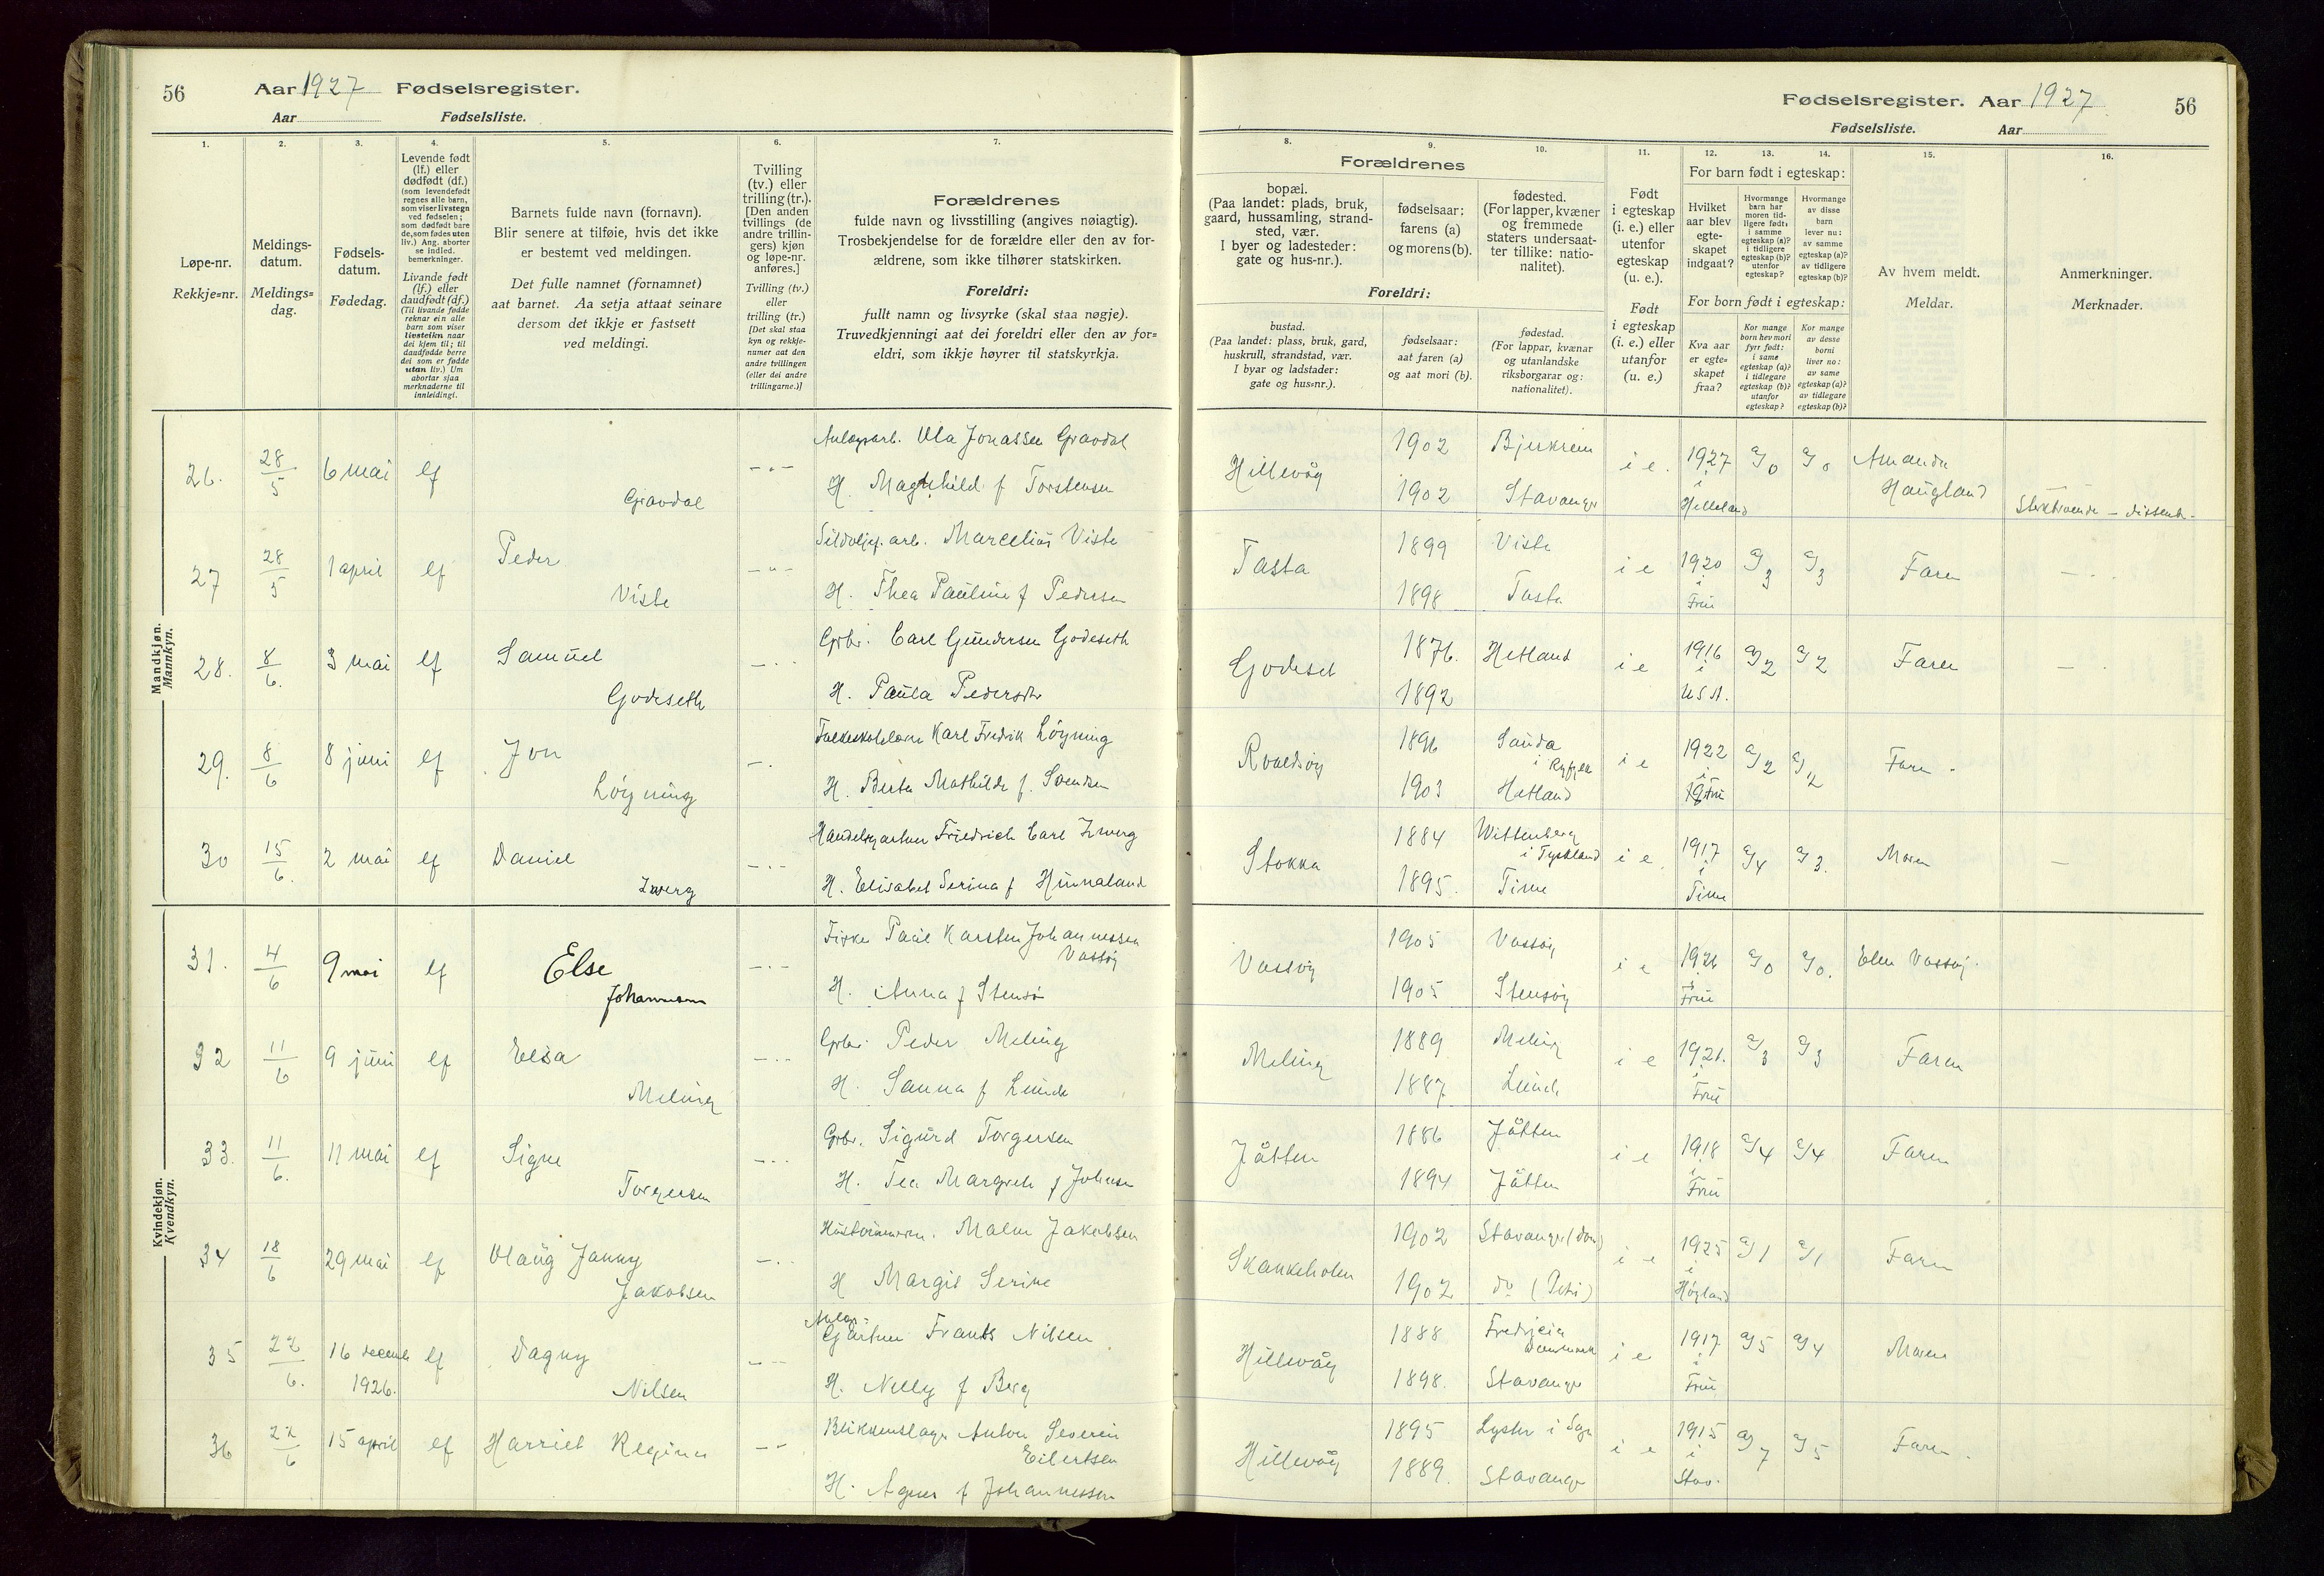 56 Aar 1927 Fødselsregister.
Aar Fødselsliste.
Fødselsregister. Aar 1927. 56
Fødselsliste. Aar
1. 2. 3. 4. 5. 6. 7.
Løpe-nr.
Rekkje=nr.
Meldings-
datum.
Meldings=
dag.
Fødsels-
datum.
Fødedag.
Levende født
(lf.) eller
dødfødt (df.)
(som levendefødt
regnes alle barn,
som viser livstegn
ved fødselen;
som dødfødt bare
de, som fødes uten
liv.) Ang. aborter
se indled.
bemerkninger.
Livande født
(lf.) eller
daudfødt (df.)
(Til livande fødde
reknar ein alle
barn som viser
livsteikn naar
dei kjem til; til
daudfødde berre
dei som er fødde
utan liv.) Um
abortar sjaa
merknaderne til
innleidingi.
Barnets fulde navn (fornavn).
Blir senere at tilføie, hvis det ikke
er bestemt ved meldingen.
Det fulle namnet (fornamnet)
aat barnet. Aa setja attaat seinare
dersom det ikkje er fastsett
ved meldingi.
Tvilling
(tv.) eller
trilling (tr.).
[Den anden
tvillings (de
andre trillin-
gers) kjøn
og løpe-nr.
anføres.]
Tvilling (tv.)
eller
trilling (tr.)
[Det skal staa
kyn og rekkje-
numer aat den
andre tvillingen
(eller dei andre
trillingarne.)]
Forældrenes
fulde navn og livsstilling (angives nøiagtig).
Trosbekjendelse for de forældre eller den av for-
ældrene, som ikke tilhører statskirken.
Foreldri:
fullt namn og livsyrke (skal staa nøgje).
Truvedkjenningi aat dei foreldri eller den av for=
eldri, som ikkje høyrer til statskyrkja.
8. 9. 10. 11. 12. 13. 14. 15. 16.
Forældrenes
bopæl.
(Paa landet: plads, bruk,
gaard, hussamling, strand-
sted, vær.
I byer og ladesteder:
gate og hus-nr.).
fødselsaar:
farens (a)
og morens (b).
fødested.
(For lapper, kvæner
og fremmede
staters undersaat-
ter tillike: natio-
nalitet).
Foreldri:
bustad.
(Paa landet: plass, bruk, gard,
huskrull, strandstad, vær.
I byar og ladstader:
gate og hus=nr.).
fødselsaar:
aat faren (a)
og aat mori (b).
fødestad.
(For lappar, kvænar
og utanlandske
riksborgarar og:
nationalitet).
Født
i egteskap
(i. e.) eller
utenfor
egteskap
(u. e.).
Født
i egteskap
(i. e.) eller
utanfor
(u. e.)
For barn født i egteskap:
Hvilket
aar blev
egte-
skapet
indgaat?
Hvormange
barn har
moren tid-
ligere født:
i samme
egteskap (a)?
i tidligere
egteskap (b)?
utenfor
egteskap?
Hvormange
av disse
barn
lever nu:
av samme
egteskap (a)?
av tidligere
egteskap (b)?
For born født i egteskap:
Kva aar
er egte=
skapet
fraa?
Kor mange
born hev mori
fyrr født:
i same
egteskap (a)?
i tidlegare
egteskap (b)?
utanfor
egteskap?
Kor mange
av desse
borni
liver no:
av same
egteskap (a)?
av tidlegare
egteskap (b)?
Av hvem meldt.
Meldar.
Anmerkninger.
Merknader.
Mandkjøn.
Mannkyn.
26. 28/5 6 mai lf Gravdal Ola Jonassen Gravdal
H. Magnhild f Torstensen
Hillevåg 1902 Bjerkreim i e. 1927 a/0 a/0 Amanda
Haugland
1902 Stavanger i
Helleland
27 28/5 1 april lf Peder
Viste
Sildoljef. arb. Marcelius Viste
H. Thea Pauline f Pedersen
Tasta 1899 Viste i e 1920 a/3 a/3 Faren
1898 Tasta i
Frue
28. 8/6. 3 mai lf Samuel
Godeseth
Grbr. Carl Gundersen Godeseth
H. Paula Pedersdtr
Godeset 1876. Hetland i e 1916 a/2 a/2 Faren
1892 i
U S A.
29. 8/6 8 juni lf Jon
Løyning
Folkeskolelærer Karl Fredrik Løyning
H. Berta Mathilde f. Svendsen
Roaldsøy 1896 Sauda
i Ryfylke i e 1922 a/2 a/2 Faren
1903 Hetland i
Frue
30 15/6. 2 mai lf Daniel
Zwerg
Handelsgartner Friedrich Carl Zwerg
H. Elisabet Serina f Hinnaland
Stokka 1884 Wittenberg
i Tyskland i e. 1917 a/4 a/3. Moren
1895. Time i
Time
Kvindekjøn.
Kvendkyn.
31. 4/6 9 mai lf Else
Johannessen
Fisker Paul Karsten Johannessen
Vassøy
H. Anna f Stensø
Vassøy 1905 Vassøy i e 1926 a/0 a/0. Elen Vassøy.
1905 Stensøy i
Frue
32 11/6 9 juni lf Elsa
Meling
Grbr. Peder Meling
H. Sanna f Lunde
Meling 1889 Meling i e 1921. a/3 a/3 Faren
1887 Lunde i
Frue
33. 11/6. 11 mai lf Signe
Torgersen
Grbr. Sigurd Torgersen
H. Tea Margrete f Johnsen
Jåtten 1886 Jåtten i e 1918 a/4 a/4 Faren
1894 Jåtten i
Frue
34 18/6 29 mai lf Olaug Janny
Jakobsen
Malm Jakobsen
H Margit Serine
Skankeholen 1902 Stavanger (dom) i e 1925 a/1 a/1 Faren
1902 do (Petri) i
Høyland
35 22/6. 16 decemb
1926. lf Dagny
Nilsen
Gartner Frants Nilsen
H. Nelly f Berg
Hillevåg 1888 Fredricia
Danmark i e 1917 a/5 a/4 Moren
1898. Stavanger i
Frue
36 22/6 15 april lf Harriet Regine
Blikkenslager Anton Severin
Eilertsen
H. Agnes f Johannessen
Hillevåg 1895 Lyster i Sogn i e 1915 a/7 a/5 Faren
1889. Stavanger i
Stav.